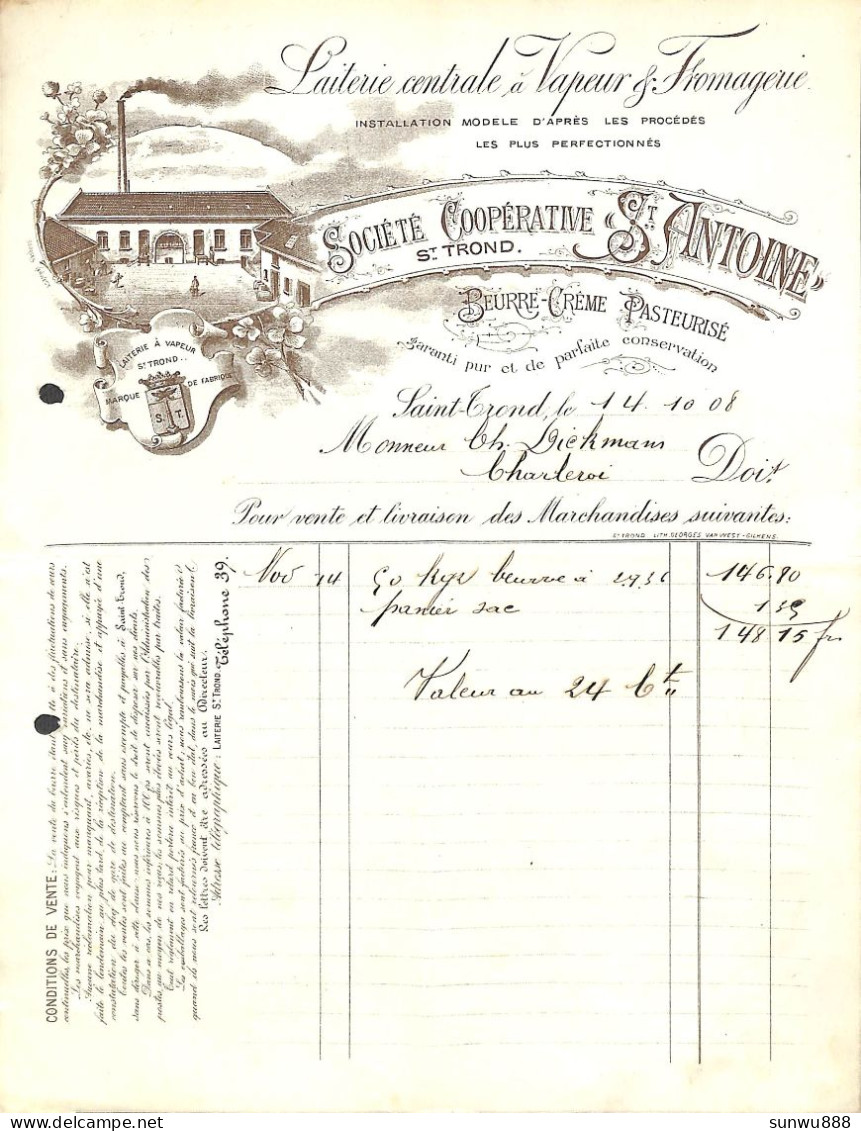 Laiterie centrale à Vapeur & Fromagerie.
INSTALLATION MODELE D'APRÈS LES PROCÉDÉS
LES PLUS PERFECTIONNÉS
SOCIÉTÉ COOPÉRATIVE «ST. ANTOINE»
ST. TROND.
BEURRE-CRÈME PASTEURISÉ
Garanti pur et de parfaite conservation
LAITERIE À VAPEUR
ST TROND..
MARQUE DE FABRIQUE
S. T.
Saint-Trond, le 14.10 08
Monsieur Ch. Dickmans
Charleroi Doit
Pour vente et livraison des Marchandises suivantes:
ST TROND LITH. GEORGES VAN WEST-GILKENS.
Nov 14 50 kgr beurre à 2936 146.80
panier sac 1 35
148 15 fr
Valeur au 24 Ct
CONDITIONS DE VENTE: La vente du beurre étant sujette à des fluctuations de cours
continuelles, les prix que nous indiquons s'entendent sauf variations et sans engagements.
Les marchandises voyagent aux risques et périls du destinataire.
Aucune réclamation pour manquant, avaries, etc. ne sera admise, si elle n'est
faite le lendemain au plus tard, de la réception de la marchandise et appuyée d'une
constatation du chef de gare de destination.
Toutes les ventes sont faites au comptant sans escompte et payables à Saint-Trond,
sans déroger à cette clause nous nous réservons le droit de disposer sur nos clients.
Dans ce cas, les sommes inférieures à 100 frs seront encaissées par l'Administration des
postes, au moyen de nos reçus; les sommes plus élevées seront recouvrables par traites.
Tout règlement en retard portera intérêt au cours légal.
Les emballages sont facturés au prix d'achat; nous rembourserons la valeur facturée
quand ils nous sont retournés franco et en bon état, dans le mois qui suit la livraison.
Les lettres doivent être adressées au Directeur.
Adresse télégraphique: LAITERIE ST. TROND. Téléphone 39.
sunwu888